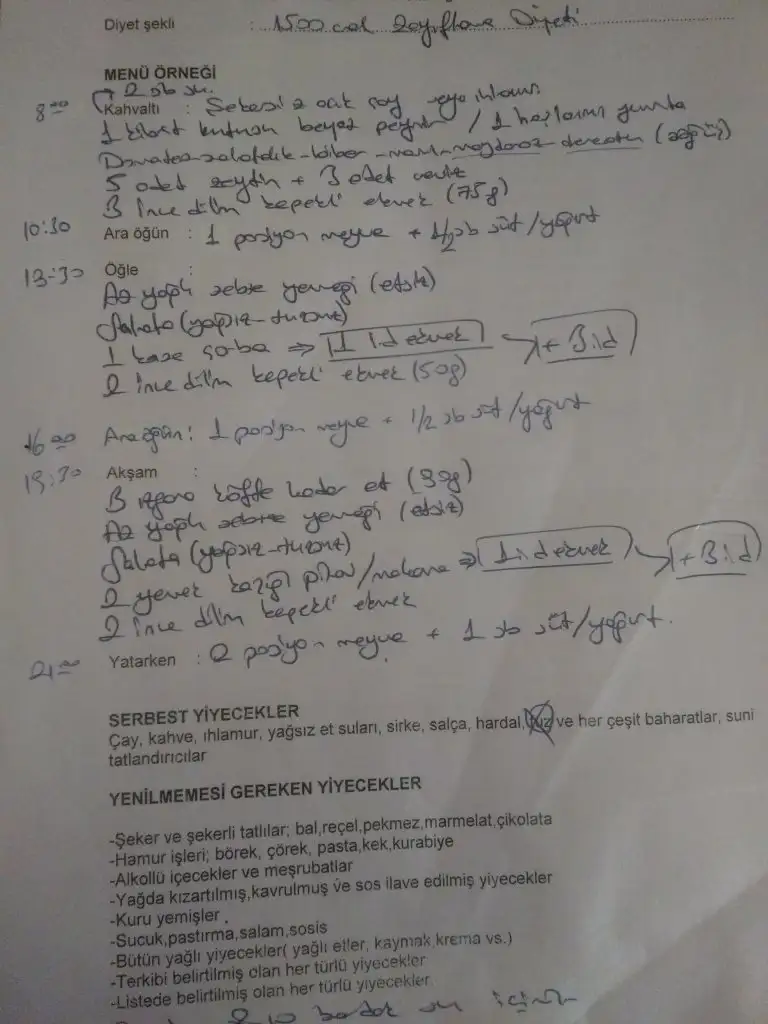 Diyet şekli : 1500 cal Zayıflama Diyeti
MENÜ ÖRNEĞİ
→ 2 sb su.
8:00 Kahvaltı : Şekersiz açık çay veya ıhlamur
1 kibrit kutusu beyaz peynir / 1 haşlanmış yumurta
Domates-salatalık-biber-nane-maydanoz-dereotu (söğüş)
5 adet zeytin + 3 adet ceviz
3 ince dilim kepekli ekmek (75g)
10:30 Ara öğün : 1 porsiyon meyve + 1/2 sb süt/yoğurt
13:30 Öğle :
Az yağlı sebze yemeği (etsiz)
Salata (yağsız-tuzsuz)
1 kase çorba ⇒ 1 i.d ekmek → + 3 i.d
2 ince dilim kepekli ekmek (50g)
16:00 Ara öğün: 1 porsiyon meyve + 1/2 sb süt/yoğurt
Akşam :
3 ızgara köfte kadar et
Az yağlı sebze yemeği (etsiz)
Salata (yağsız-tuzsuz)
2 yemek kaşığı pilav/makarna ⇒ 1 i.d ekmek → + 3 i.d
2 ince dilim kepekli ekmek
21:00 Yatarken : 2 porsiyon meyve + 1 sb süt/yoğurt.
SERBEST YİYECEKLER
Çay, kahve, ıhlamur, yağsız et suları, sirke, salça, hardal, tuz ve her çeşit baharatlar, suni
tatlandırıcılar
YENİLMEMESİ GEREKEN YİYECEKLER
-Şeker ve şekerli tatlılar; bal,reçel,pekmez,marmelat,çikolata
-Hamur işleri; börek, çörek, pasta,kek,kurabiye
-Alkollü içecekler ve meşrubatlar
-Yağda kızartılmış,kavrulmuş ve sos ilave edilmiş yiyecekler
-Kuru yemişler .
-Sucuk,pastırma,salam,sosis
-Bütün yağlı yiyecekler( yağlı etler, kaymak,krema vs.)
-Terkibi belirtilmiş olan her türlü yiyecekler
-Listede belirtilmiş olan her türlü yiyecekler
bardak su için